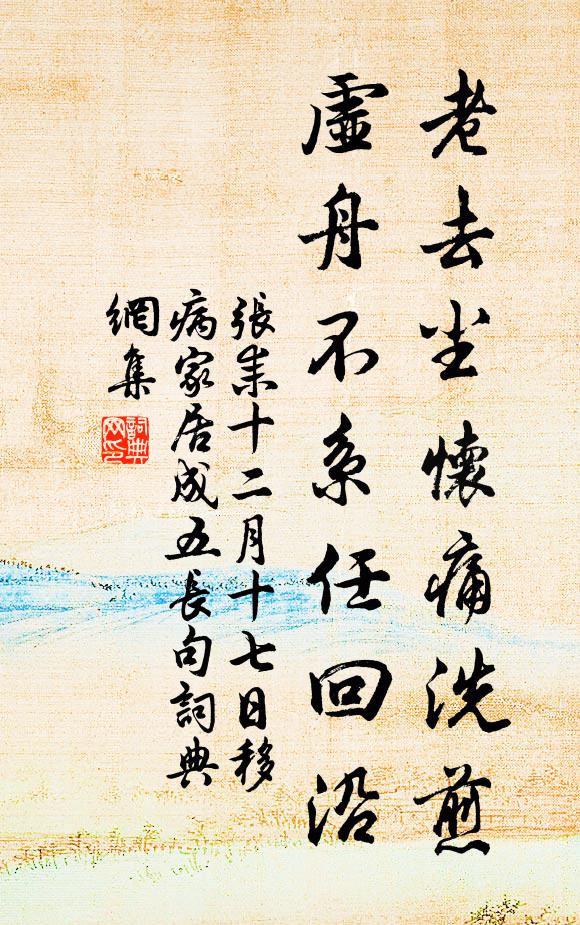 老去尘懷痛洗煎
虛舟不系任回沿
張耒十二月十七日移
病家居成五長句詞典
網集
詞典
网印